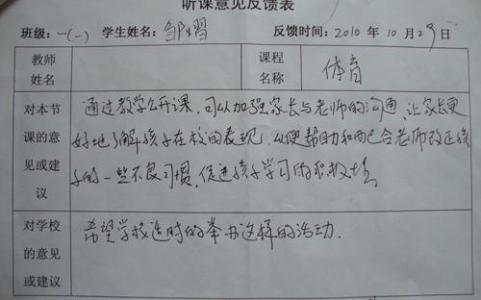 听课意见反馈表
班级：一(一) 学生姓名：邹习 反馈时间：2010年10月29日
教师姓名 课程名称 体育
对本节课的意见或建议
通过教学公开课，可以加强家长与老师的沟通，让家长更
好地了解孩子在校的表现，以便帮助和配合老师改正孩
子的一些不良习惯，促进孩子学习的积极性。
对学校的意见或建议
希望学校适时的举办这样的活动．